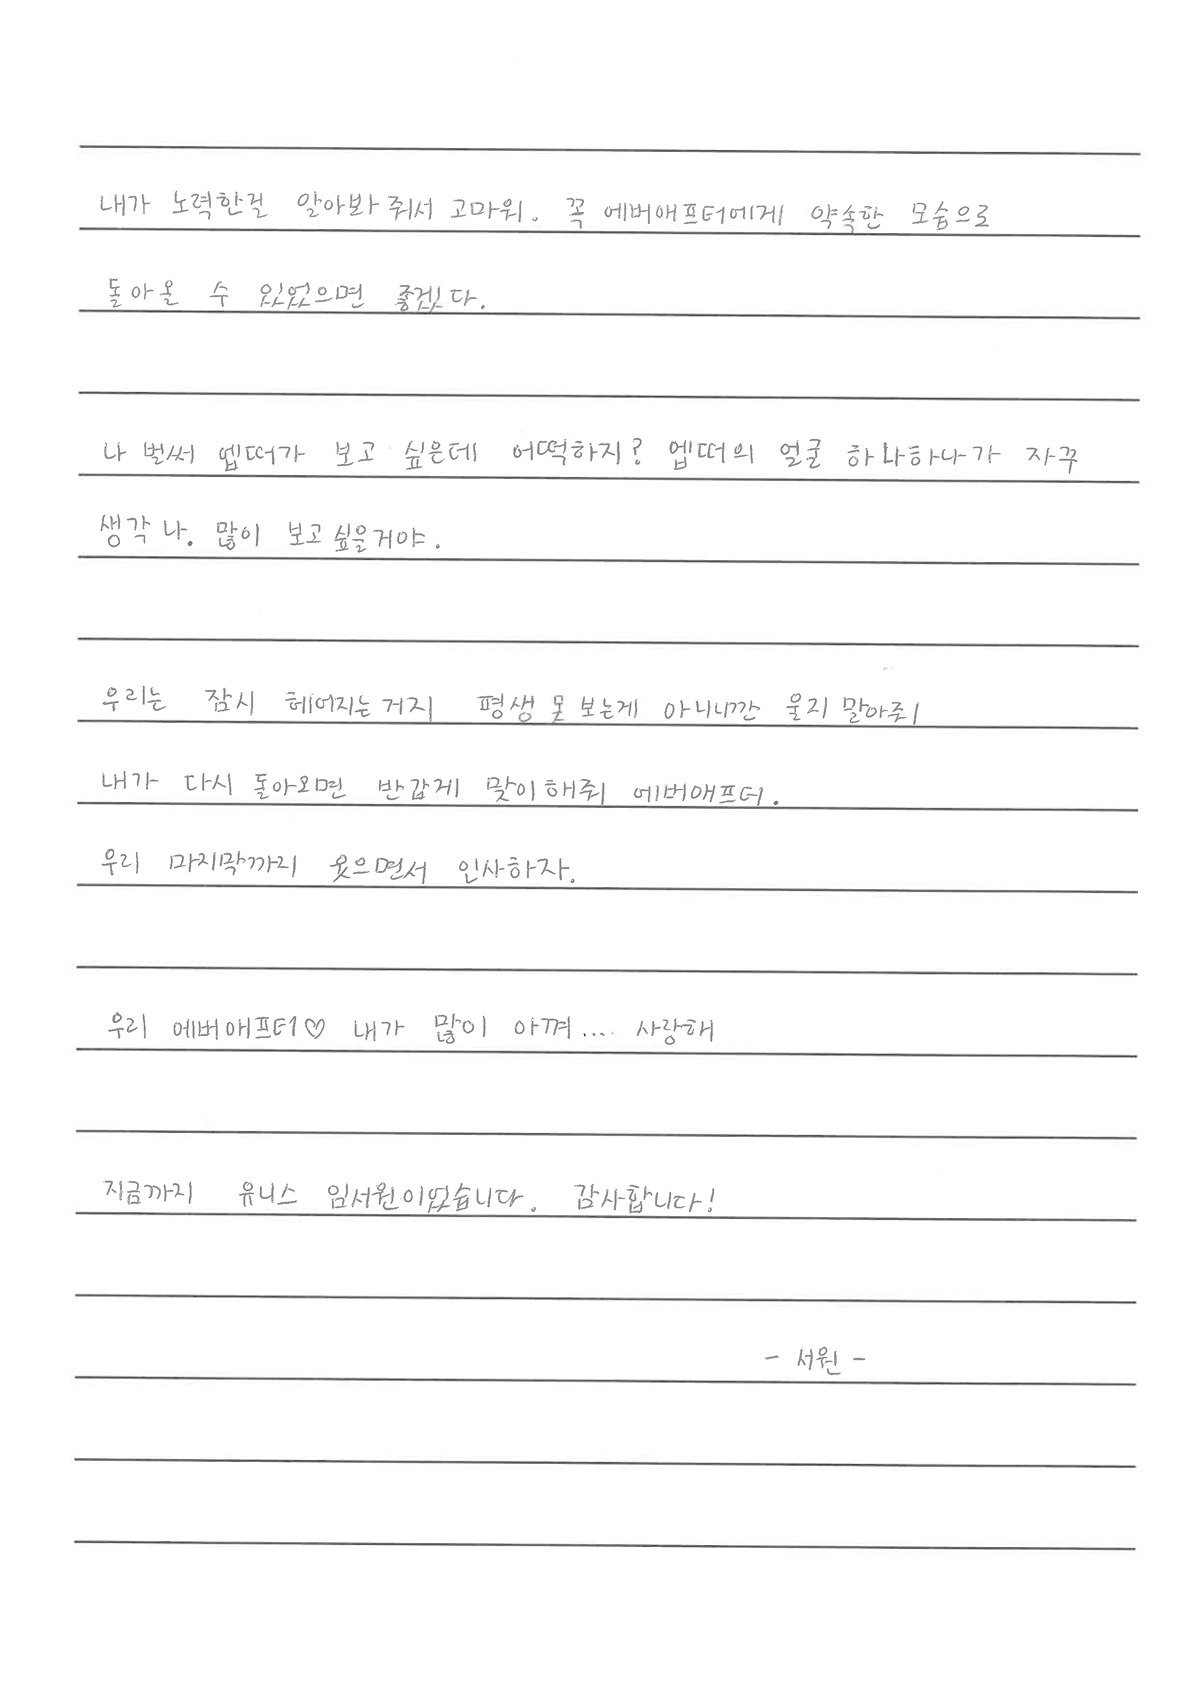 내가 노력한걸 알아봐줘서 고마워. 꼭 에버애프터에게 약속한 모습으로
돌아올 수 있었으면 좋겠다.
나 벌써 엡떠가 보고 싶은데 어떡하지? 엡떠의 얼굴 하나하나가 자꾸
생각 나. 많이 보고싶을거야.
우리는 잠시 헤어지는거지 평생 못 보는게 아니니깐 울지 말아줘
내가 다시 돌아오면 반갑게 맞이해줘 에버애프터.
우리 마지막까지 웃으면서 인사하자.
우리 에버애프터♡ 내가 많이 아껴.... 사랑해
지금까지 유니스 임서원이였습니다. 감사합니다!
- 서원 -